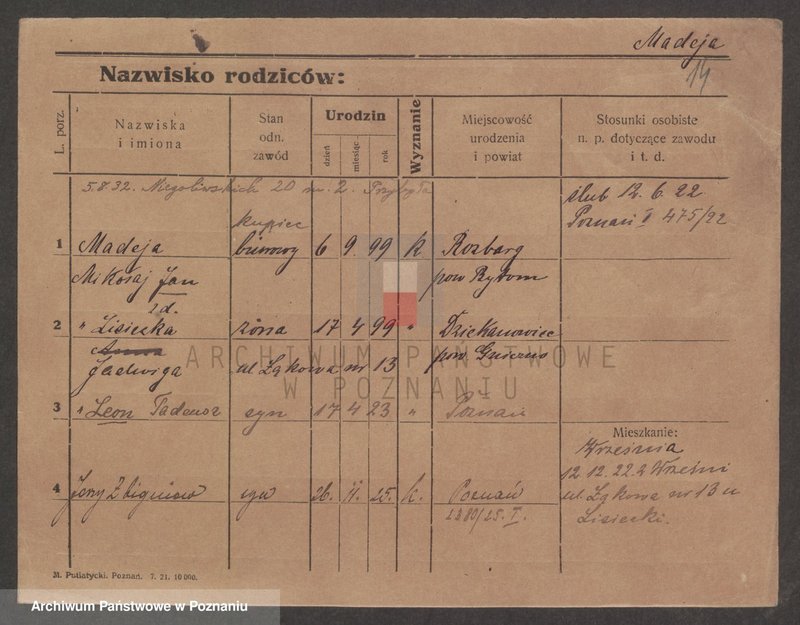 Madeja
14
Nazwisko rodziców:
L. porz.
Nazwiska
i imiona
Stan
odn.
zawód
Urodzin
dzień
miesiąc
rok
Wyznanie
Miejscowość
urodzenia
i powiat
Stosunki osobiste
n. p. dotyczące zawodu
i t. d.
5.8.32. Niegolewskich 20 m. 2. Przybyła
ślub 12. 6. 22
Poznań 475/22
kupiec
1 Madeja biurowy 6 9. 99 k Rozbarg
Mikołaj Jan pow Bytom
z d.
2 " Lisiecka żona 17 4 99 " Dziekanowice
Anna pow. Gniezno
Jadwiga ul Łąkowa nr 13
ARCHIWUM PAŃSTWOWE
W POZNANIU
3 " Leon Tadeusz syn 17 4 23 " Poznań
Mieszkanie:
Września
12 12. 22. z Wrześni
4 Jerzy Zbigniew syn 26. 11. 25. k. Poznań
ul Łąkowa nr 13 u
2380/25. I.
Lisiecki.
M. Putiatycki. Poznań. 7. 21. 10 000.
Archiwum Państwowe w Poznaniu